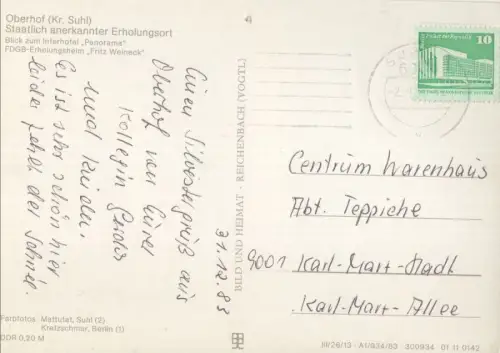 Oberhof (Kr. Suhl)
Staatlich anerkannter Erholungsort
Blick zum Interhotel „Panorama“
FDGB-Erholungsheim „Fritz Weineck“
Einen Silvestergruß aus
Oberhof von Eurer
Kollegin
und Kinder.
Es ist sehr schön hier
leider fehlt der Schnee.
31.12.83
BILD UND HEIMAT - REICHENBACH (VOGTL)
10
Centrum Warenhaus
Abt. Teppiche
9001 Karl-Marx-Stadt
Karl-Marx-Allee
Farbfotos: Mattutat, Suhl (2)
Kretzschmar, Berlin (1)
DDR 0,20 M
III/26/13 A 1/B34/83 300934 01 11 0142